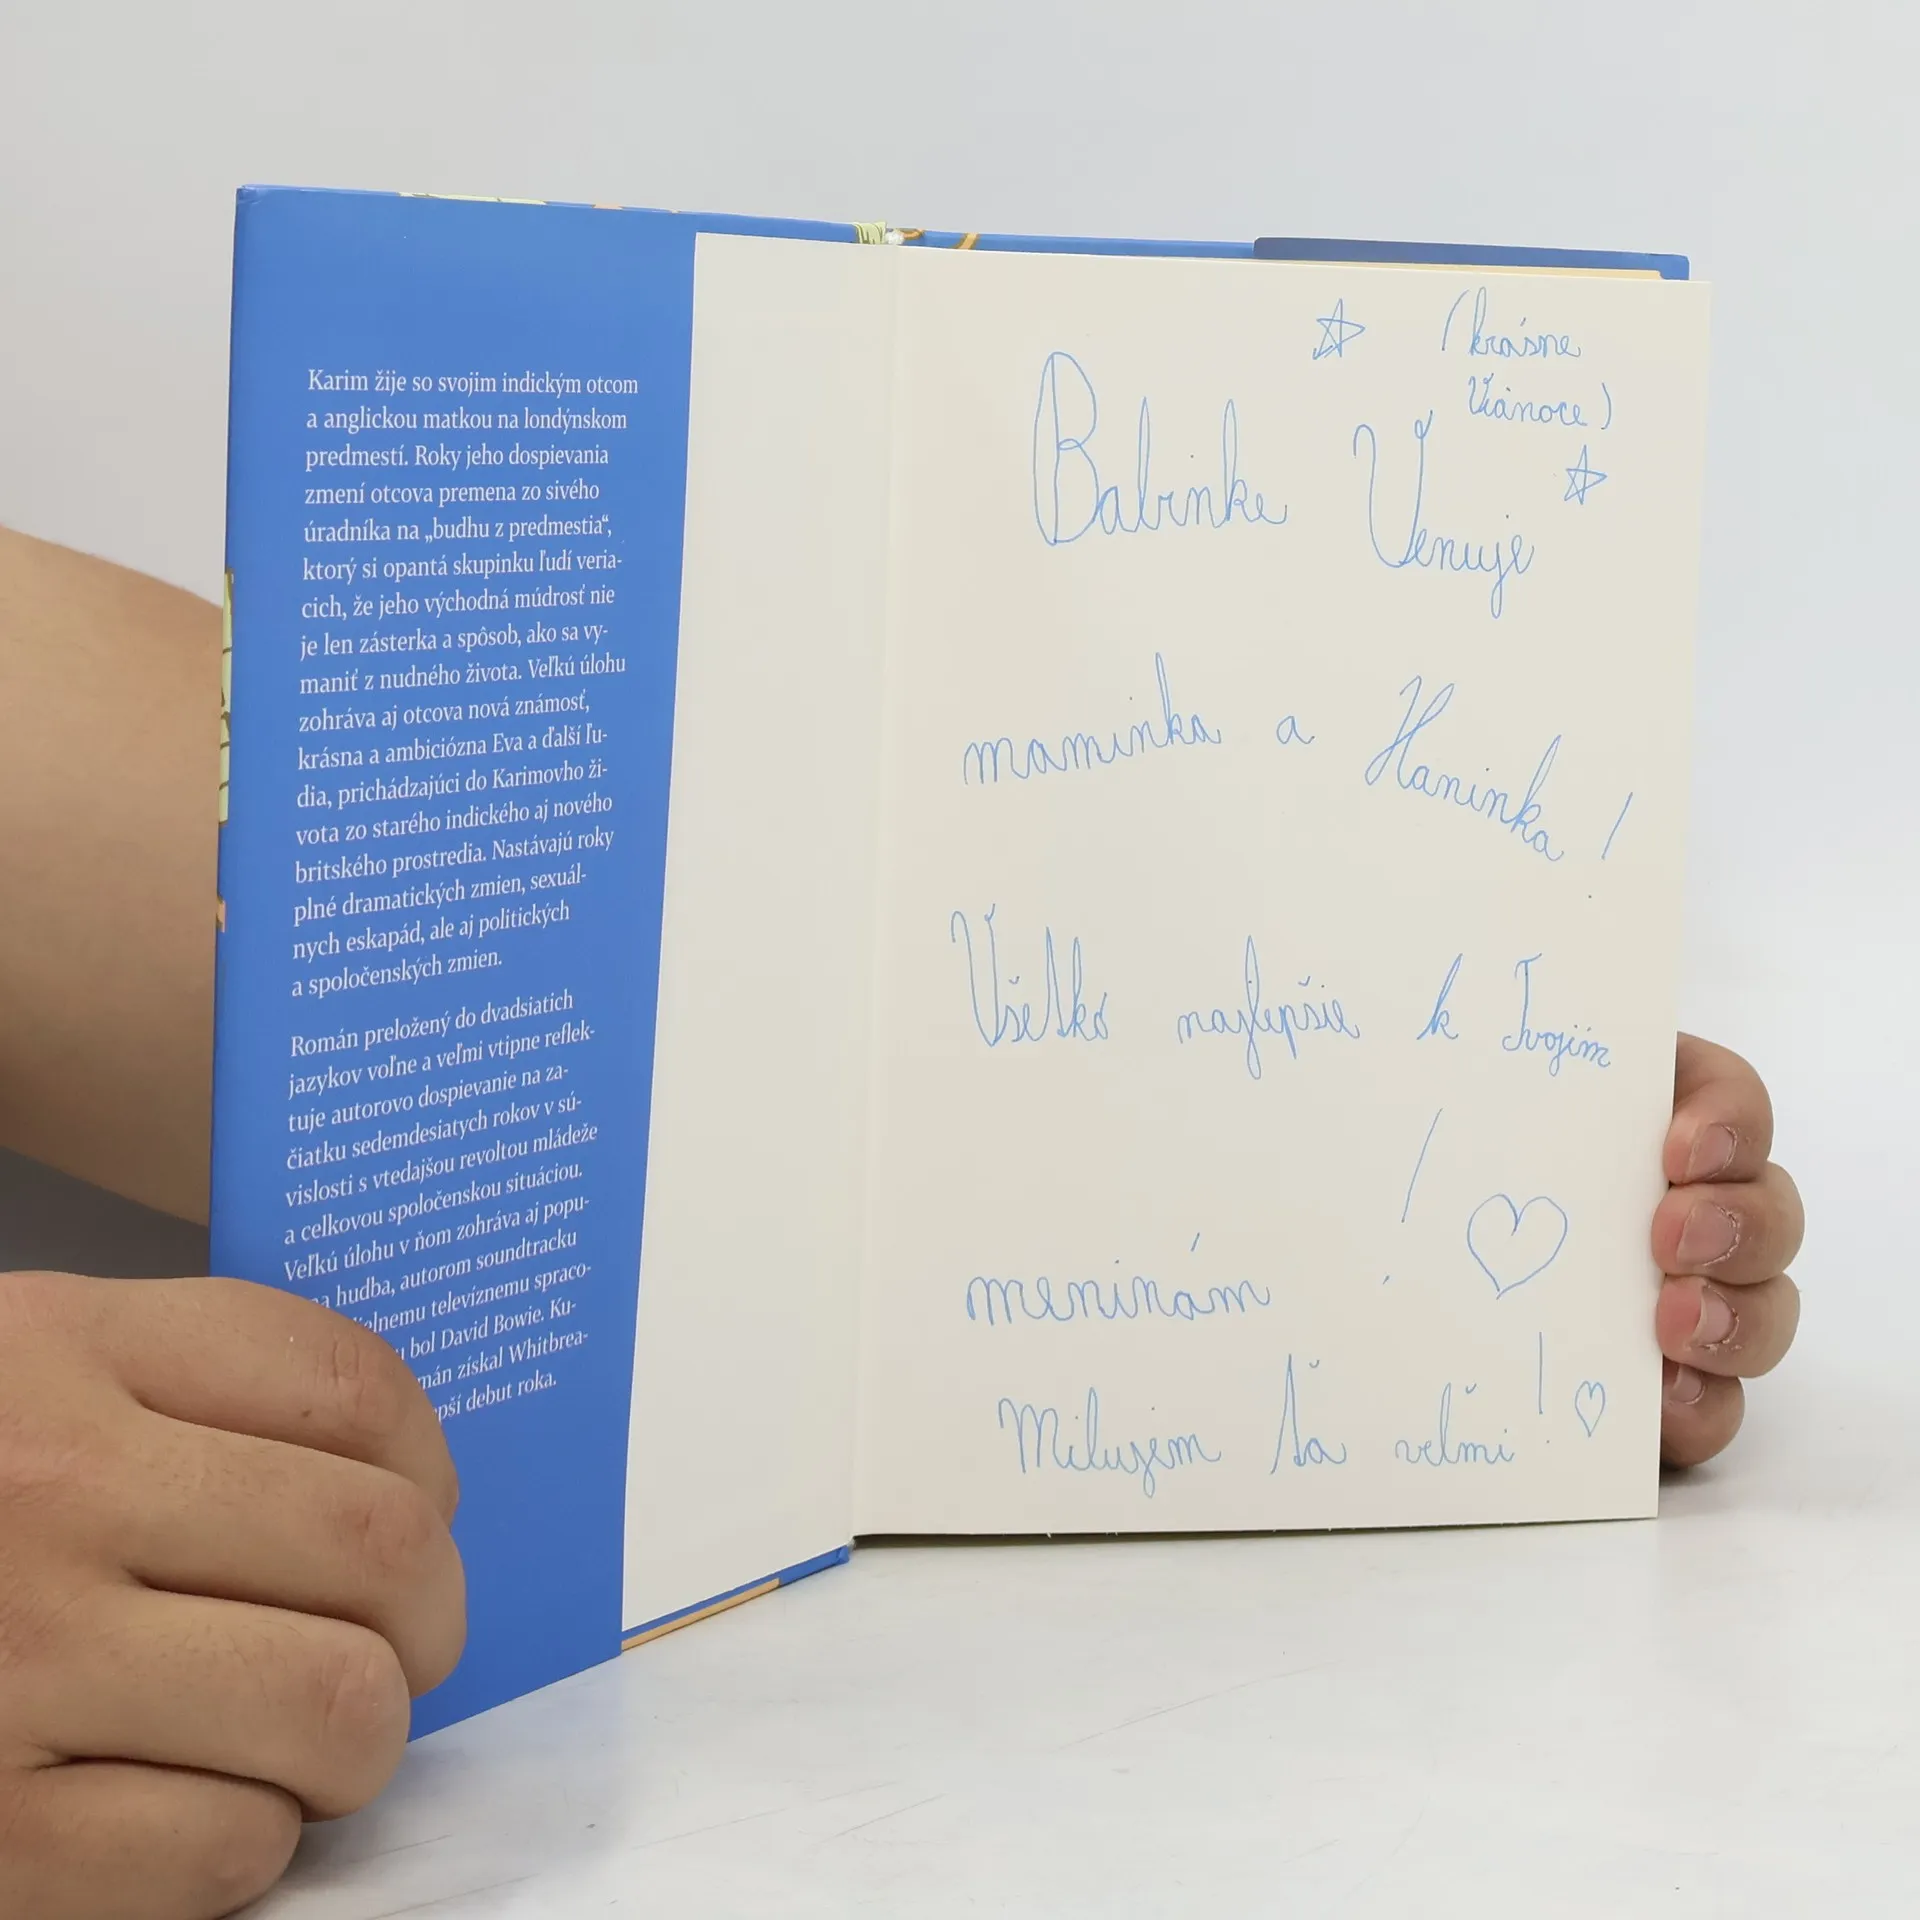 Karim žije so svojim indickým otcom
a anglickou matkou na londýnskom
predmestí. Roky jeho dospievania
zmení otcova premena zo sivého
úradníka na „budhu z predmestia“,
ktorý si opantá skupinku ľudí veria-
cich, že jeho východná múdrosť nie
je len zásterka a spôsob, ako sa vy-
maniť z nudného života. Veľkú úlohu
zohráva aj otcova nová známosť,
krásna a ambiciózna Eva a ďalší ľu-
dia, prichádzajúci do Karimovho ži-
vota zo starého indického aj nového
britského prostredia. Nastávajú roky
plné dramatických zmien, sexuál-
nych eskapád, ale aj politických
a spoločenských zmien.
Román preložený do dvadsiatich
jazykov voľne a veľmi vtipne reflek-
tuje autorovo dospievanie na za-
čiatku sedemdesiatych rokov v sú-
vislosti s vtedajšou revoltou mládeže
a celkovou spoločenskou situáciou.
Veľkú úlohu v ňom zohráva aj popu-
hudba, autorom soundtracku
televíznemu spraco-
bol David Bowie. Ku-
získal Whitbrea-
debut roka.
(krásne
Vianoce)
Babinke Venuje
maminka a Haninka!
Všetko najlepšie k Tvojim
meninám!
Milujem Ťa veľmi!